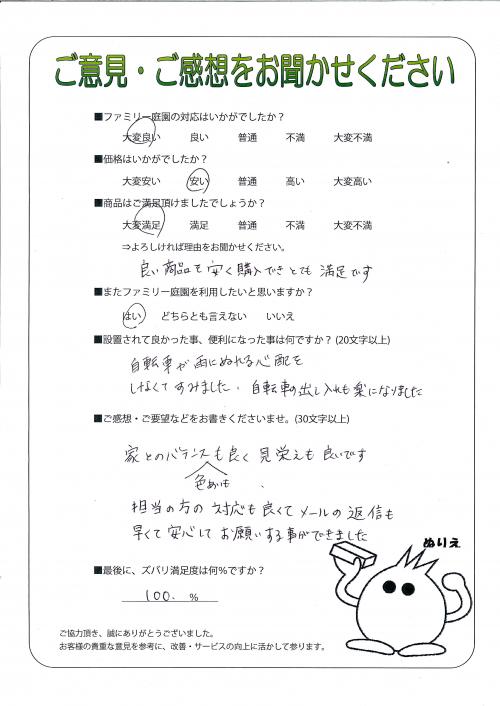 ご意見・ご感想をお聞かせください
■ファミリー庭園の対応はいかがでしたか？
大変良い 良い 普通 不満 大変不満
■価格はいかがでしたか？
大変安い 安い 普通 高い 大変高い
■商品はご満足頂けましたでしょうか？
大変満足 満足 普通 不満 大変不満
⇒よろしければ理由をお聞かせください。
良い商品を安く購入できとても満足です
■またファミリー庭園を利用したいと思いますか？
はい どちらとも言えない いいえ
■設置されて良かった事、便利になった事は何ですか？(20文字以上)
自転車が雨にぬれる心配を
しなくてすみました。自転車の出し入れも楽になりました
■ご感想・ご要望などをお書きくださいませ。(30文字以上)
家とのバランスも良く見栄えも良いです
色あいも、
担当の方の対応も良くてメールの返信も
早くて安心してお願いする事ができました
ぬりえ
■最後に、ズバリ満足度は何％ですか？
100. ％
ご協力頂き、誠にありがとうございました。
お客様の貴重な意見を参考に、改善・サービスの向上に活かして参ります。